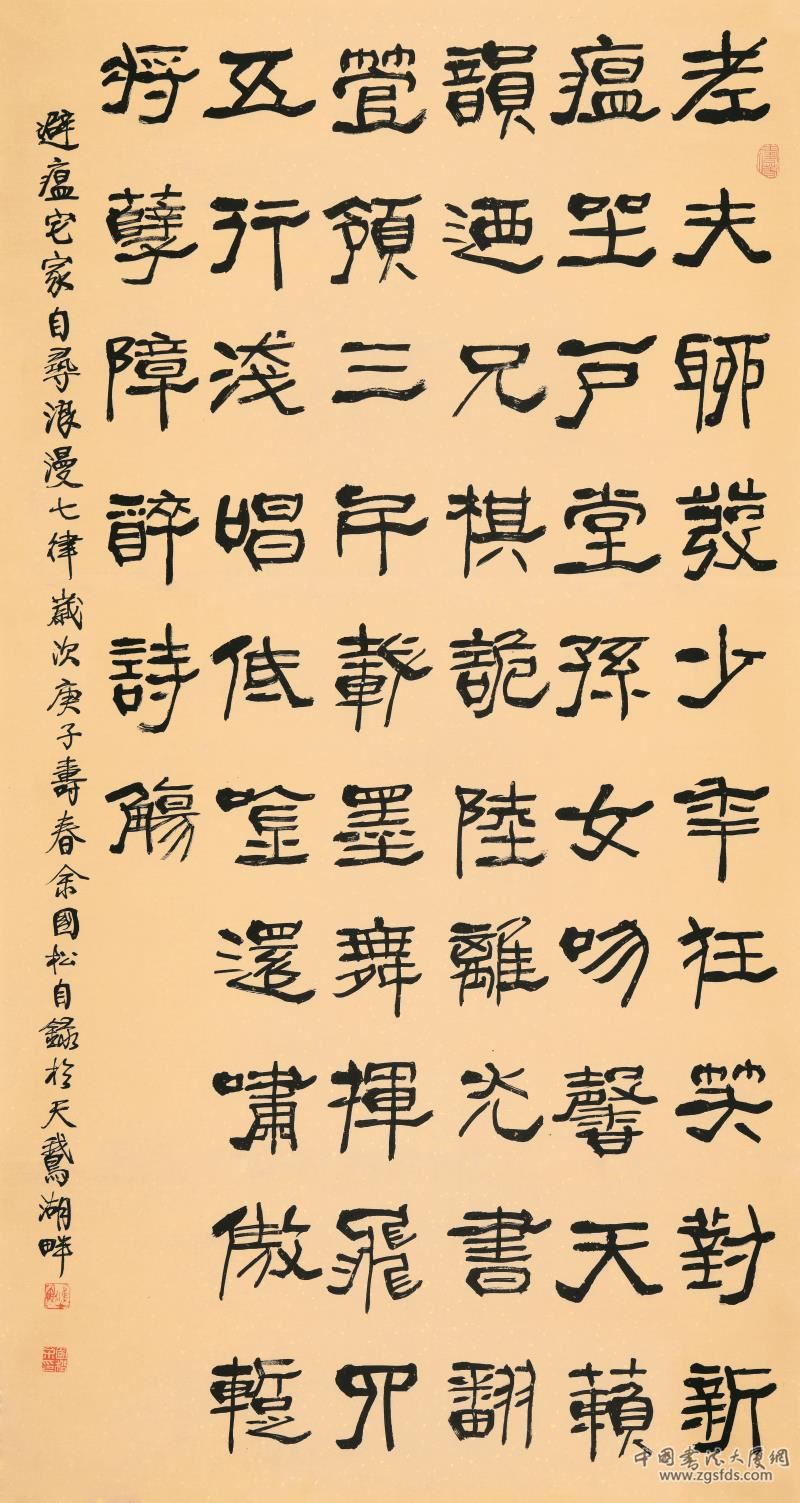 老夫聊發少年狂笑對新
瘟坐戶堂孫女吻馨天籟
韻迺兄棋詭陸離光書翻
管領三千載墨舞揮飛四
五行淺唱低唫還嘯傲暫
將孽障醉詩觴
避瘟宅家自尋浪漫七律歲次庚子壽春余國松自錄於天鵝湖畔
中国书法大厦網
www.zgsfds.com